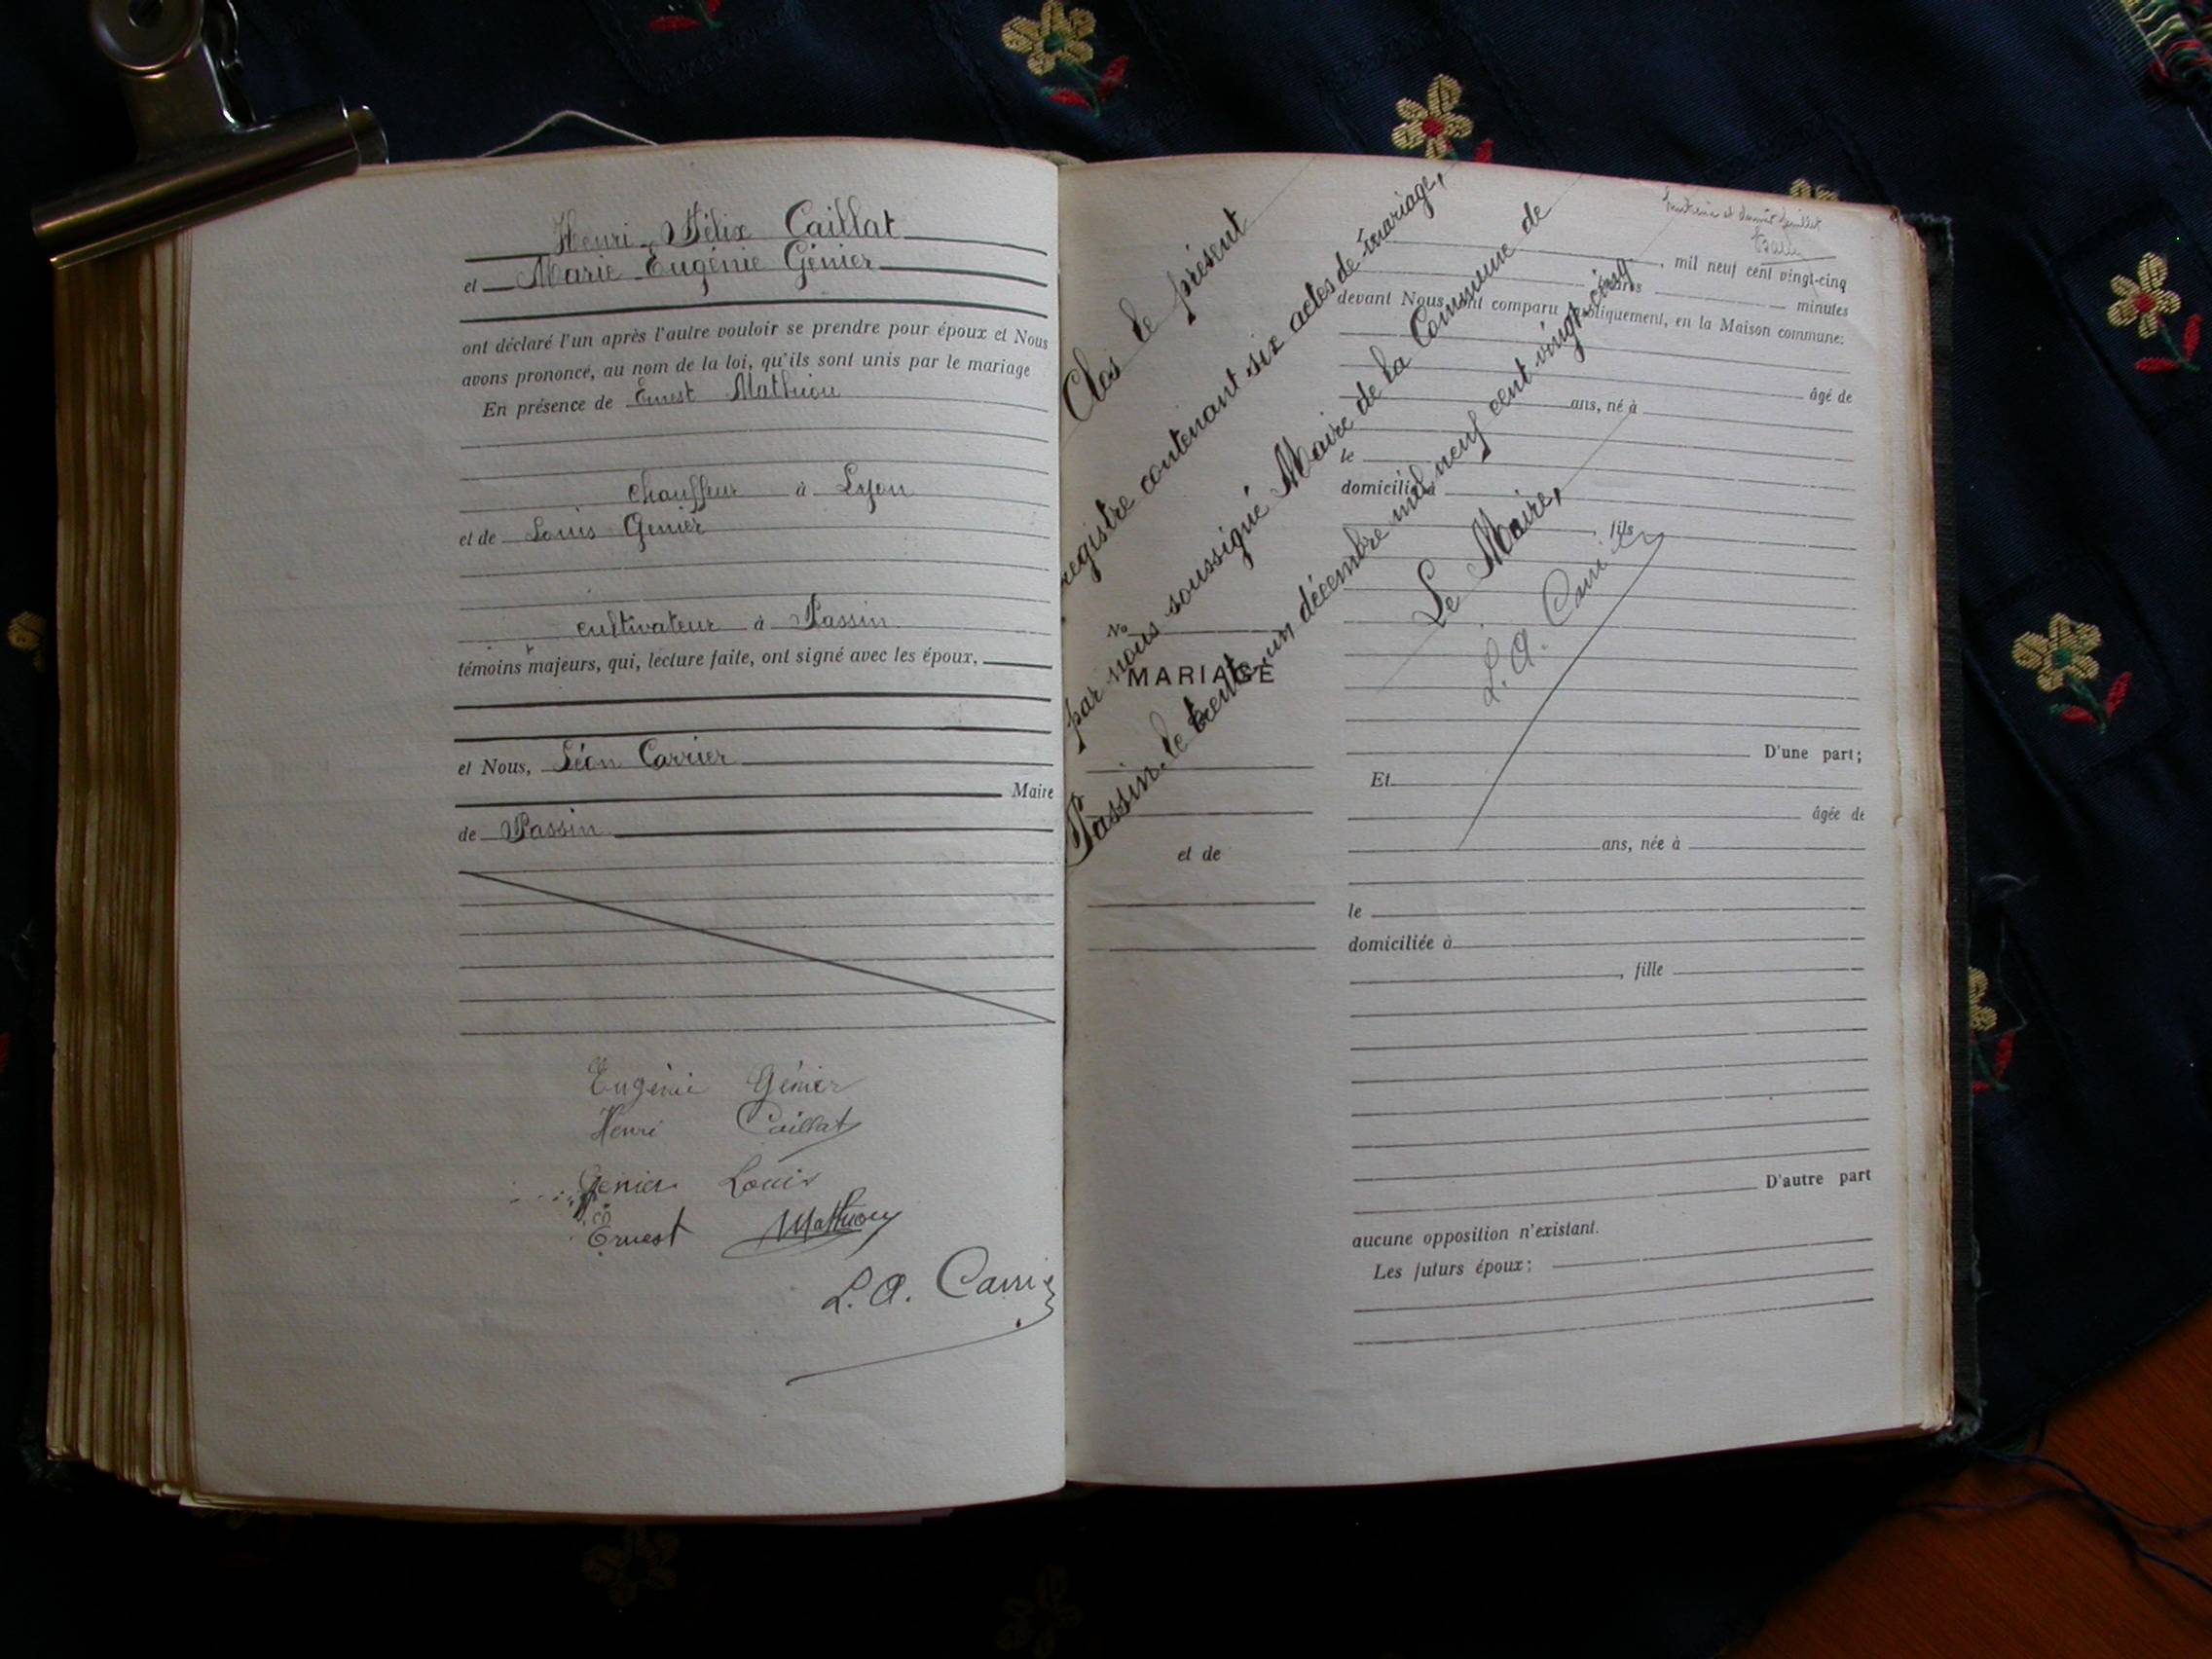 Henri Félix Caillat
et Marie Eugénie Génier
ont déclaré l'un après l'autre vouloir se prendre pour époux et Nous
avons prononcé, au nom de la loi, qu'ils sont unis par le mariage
En présence de Ernest Mathiou
chauffeur à Lyon
et de Louis Génier
cultivateur à Passin.
témoins majeurs, qui, lecture faite, ont signé avec les époux,
et Nous, Léon Carrier
Maire
de Passin
Eugénie Génier
Henri Caillat
Genier Louis
Ernest Mathiou
L. A. Carrier
Clos le présent
registre contenant six actes de mariage,
par nous soussigné Maire de la Commune de
Passin. le trente-un décembre mil neuf cent vingt-cinq.
Le Maire,
L. A. Carrier
dernier feuillet
, mil neuf cent vingt-cinq
heures minutes
devant Nous ont comparu publiquement, en la Maison commune:
âgé de
ans, né à
le
domicilié à
, fils
No
MARIAGE
D'une part;
Et
âgée de
et de
ans, née à
le
domiciliée à
, fille
D'autre part
aucune opposition n'existant.
Les futurs époux;